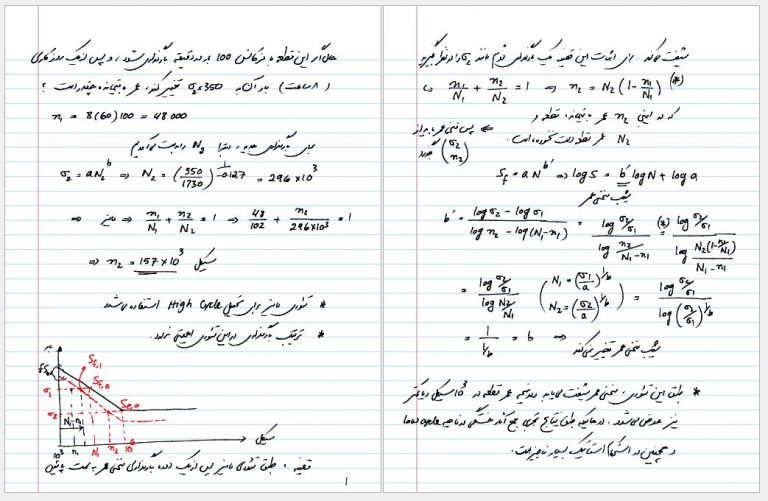 حال اگر این قطعه با فرکانس 100 بار در دقیقه بارگذاری شود و پس از یک روز کاری
(۸ ساعت) بار آن به σ₂=350 تغییر کند، عمر باقیمانده چقدر است ؟
n₁ = 8(60)100 = 48000
برای بارگذاری جدید، ابتدا N₂ را بدست می‌آوریم
σ₂ = aN₂^b ⇒ N₂ = (350/1730)^(1/-0.127) = 296×10³
⇒ ماینر ⇒ n₁/N₁ + n₂/N₂ = 1 ⇒ 48/102 + n₂/296×10³ = 1
⇒ n₂ = 157×10³ سیکل
* تئوری ماینر برای تحلیل High Cycle استفاده می‌شود
* ترتیب بارگذاری در این تئوری اهمیتی ندارد.
Sf,1
Sf,0
Se,0
σ₁
σ₂
N₁-n₁
10³ n₁ N₁ n₂ 10⁶ سیکل
قضیه : طبق تئوری ماینر پس از یک دوره بارگذاری منحنی عمر به سمت پائین
1
شیفت می‌کند. برای اثبات این قضیه یک بارگذاری دوم مانند σ₂ را در نظر بگیرید
n₁/N₁ + n₂/N₂ = 1 ⇒ n₂ = N₂(1-n₁/N₁) (*)
که در اینجا n₂ عمر باقیمانده قطعه و
N₂ عمر قطعه دست نخورده است.
⇒ پس منحنی عمر باید از
(σ₂ n₂) بگذرد
Sf = aN^b' ⇒ log S = b' log N + log a
شیب منحنی عمر
b' = (log σ₂ - log σ₁)/(log n₂ - log(N₁-n₁)) = (log σ₂/σ₁)/(log n₂/(N₁-n₁)) (*)= (log σ₂/σ₁)/(log N₂(1-n₁/N₁)/(N₁-n₁))
= (log σ₂/σ₁)/(log N₂/N₁) (N₁ = (σ₁/a)^(1/b) N₂ = (σ₂/a)^(1/b)) = (log σ₂/σ₁)/(log(σ₂/σ₁)^(1/b))
= 1/(1/b) = b ⇒ شیب منحنی عمر تغییر نمی‌کند
* طبق این تئوری، منحنی عمر شیفت می‌یابد و در نتیجه عمر قطعه در 10³ سیکل و یا کمتر
نیز عوض می‌شود. در حالیکه طبق نتایج تجربی جمع آثار خستگی در ناحیه low cycle
و همچنین در استحکام استاتیک بسیار ناچیز است.